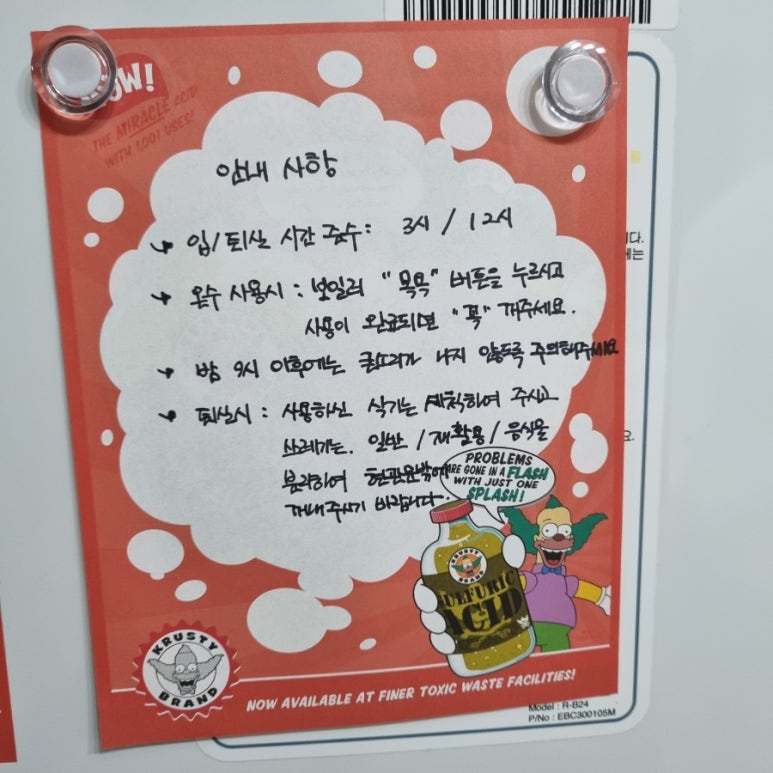 OW!
THE MIRACLE ACID
WITH 1,001 USES!
안내 사항
→ 입/퇴실 시간 준수: 3시 / 12시
→ 온수 사용시 : 보일러 "목욕" 버튼을 누르시고
사용이 완료되면 "꼭" 꺼주세요.
→ 밤 9시 이후에는 큰소리가 나지 않도록 주의해주세요
→ 퇴실시 : 사용하신 식기는 세척하여 주시고
쓰레기는. 일반 / 재활용 / 음식물
분리하여 현관문밖에
꺼내주시기 바랍니다.
PROBLEMS
ARE GONE IN A FLASH
WITH JUST ONE
SPLASH!
KRUSTY
BRAND
SULFURIC
ACID
KRUSTY
BRAND
NOW AVAILABLE AT FINER TOXIC WASTE FACILITIES!
다.
에는
요.
Model : R-B24
P/No : EBC300105M